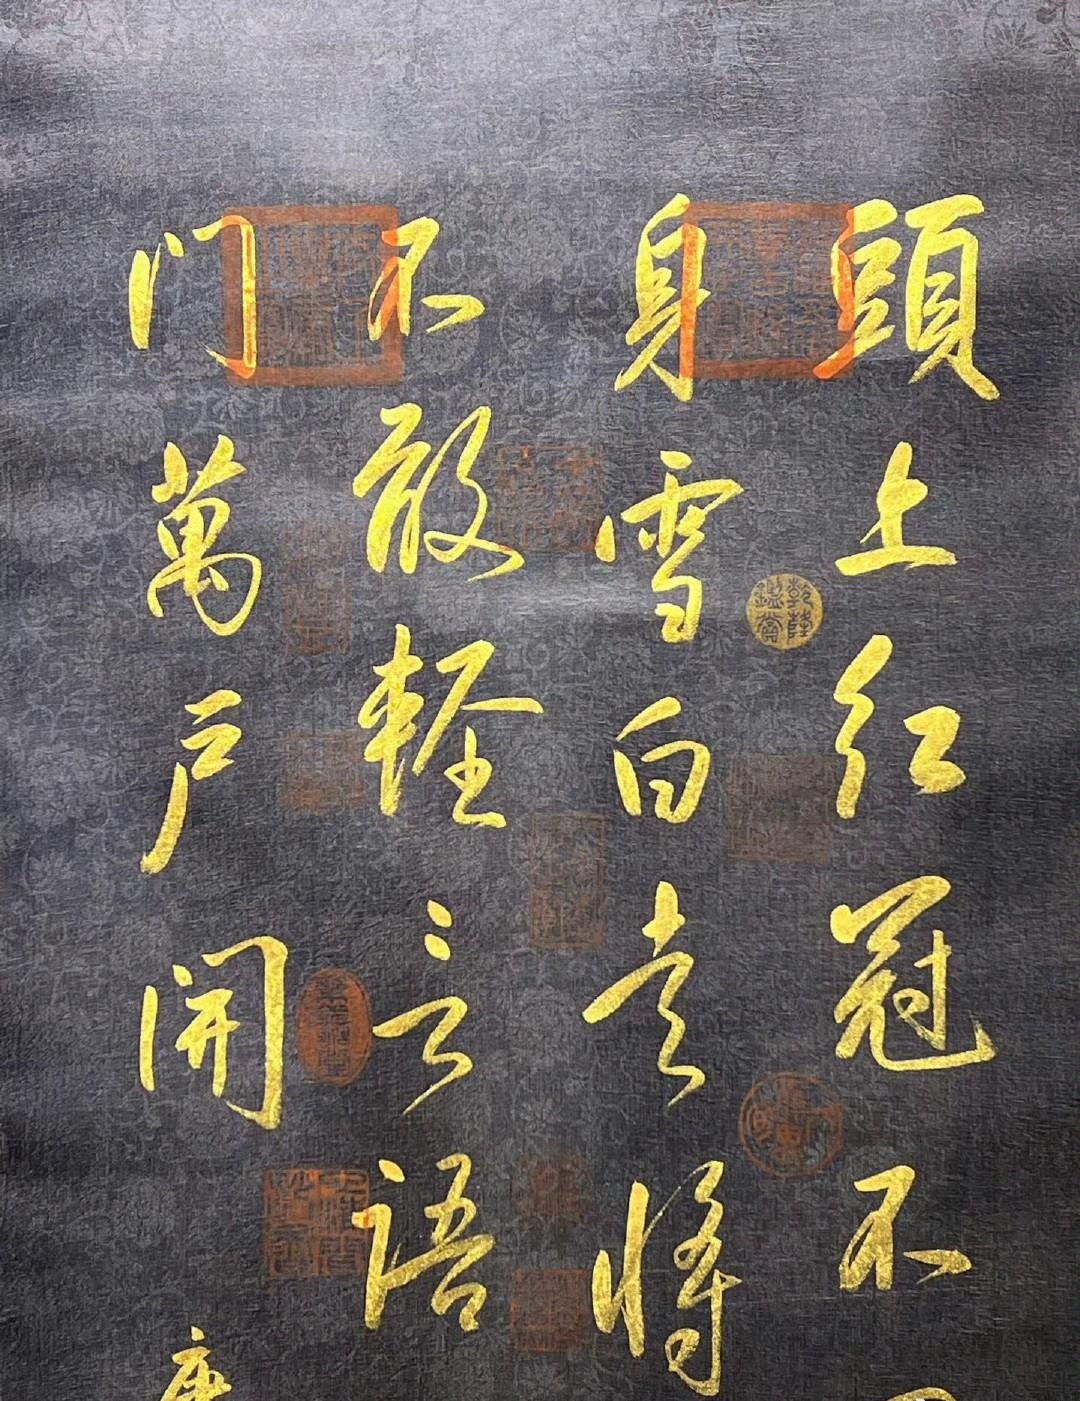 頭上红冠不
身雪白走將
不敢輕言语
门萬户開